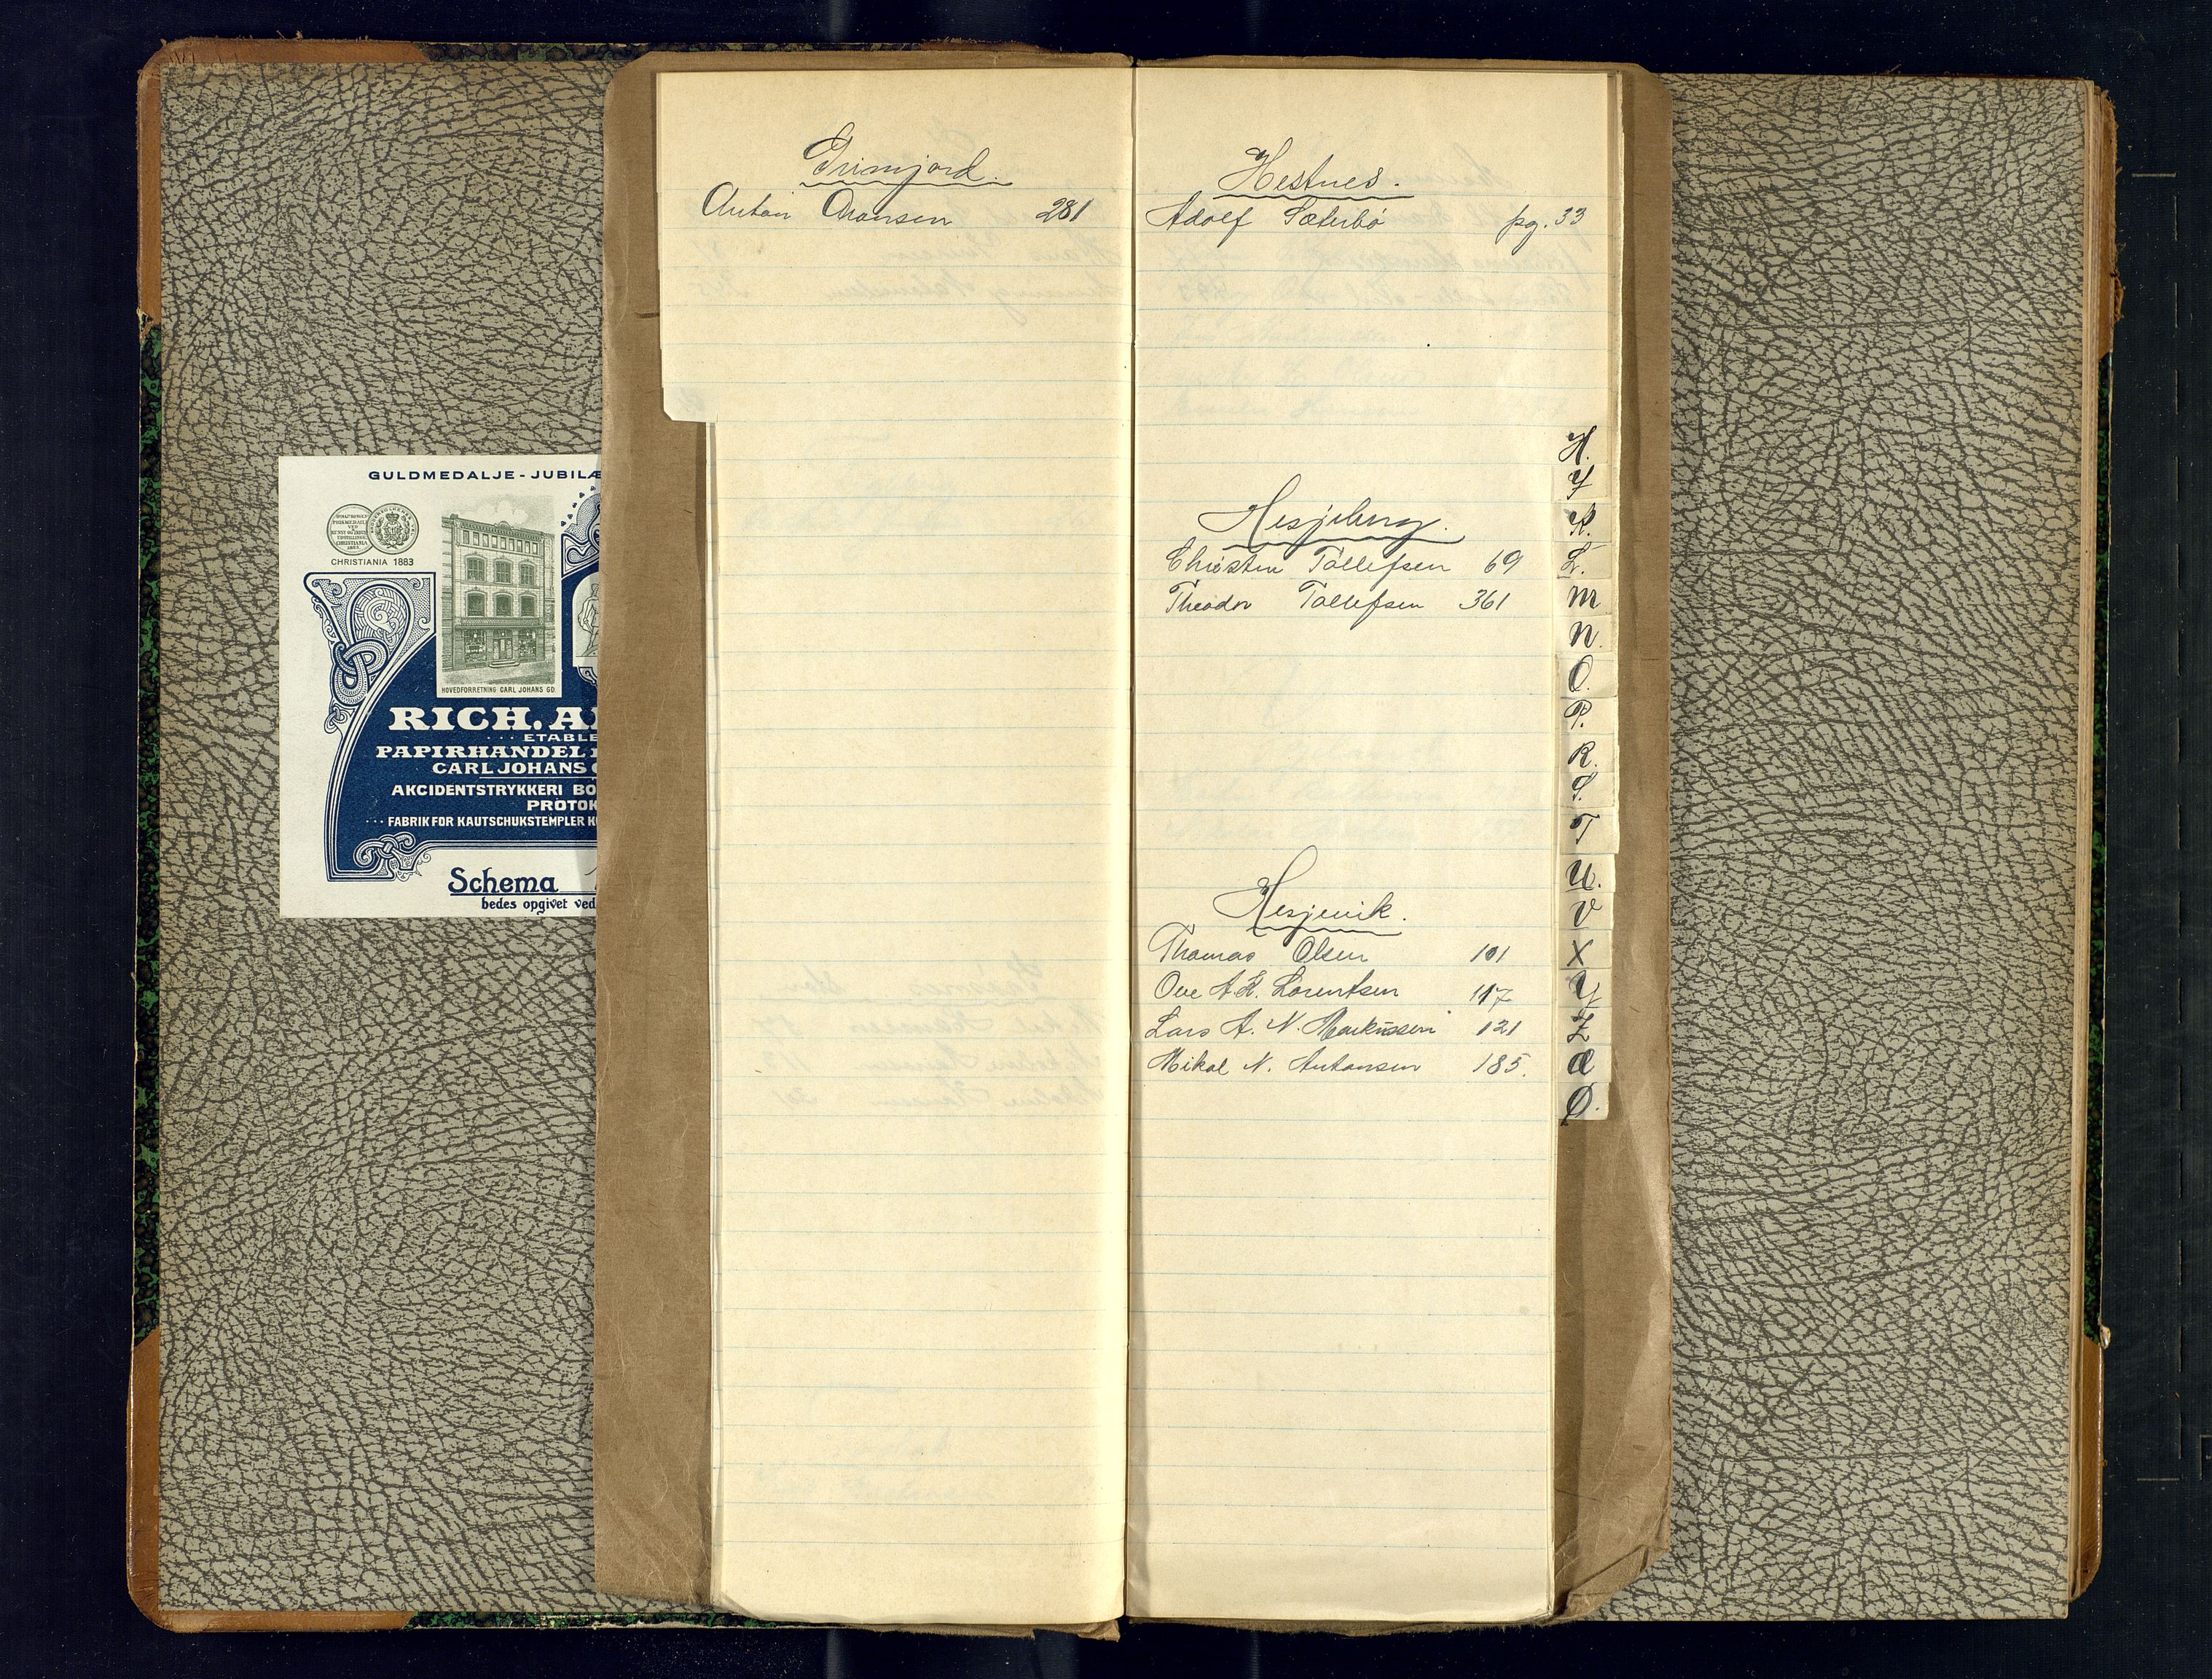 GULDMEDALJE-JUBILÆ
CHRISTIANIA 1883
HOVEDFORRETNING CARL JOHANS GD.
RICH. A
ETABLE
PAPIRHANDEL
CARL JOHANS G
AKCIDENTSTRYKKERI BO
PROTOK
FABRIK FOR KAUTSCHUKSTEMPLER K
Schema
bedes opgivet ved
Grimjord.
Anton Aronsen 281
Hestnes.
Adolf Sæterbö pg. 33
Hesjeberg.
Christen Tollefsen 69
Theodor Tollefsen 361
Hesjevik.
Thomas Olsen 101
Ove A.K. Lorentsen 117
Lars A. N. Markussen 121
Mikal N. Antonsen 185.
H.
Y
K.
L.
M
N.
O.
P.
R.
S.
T
U.
V
X
Y
Z
Æ
Ø.